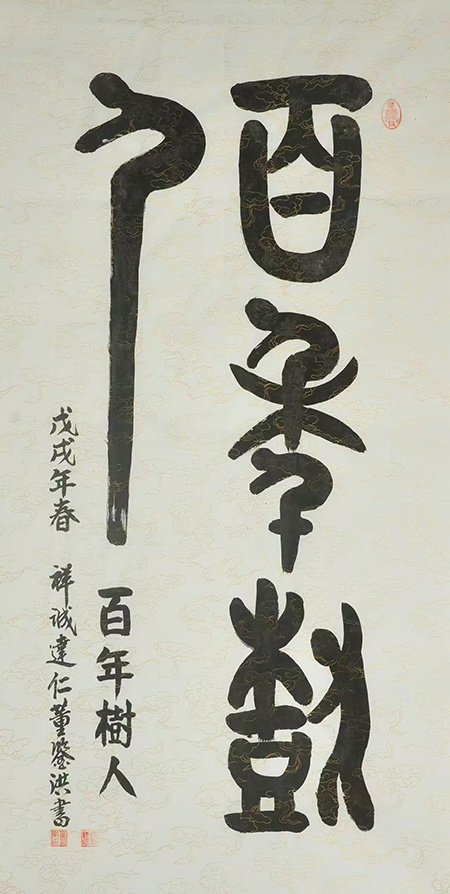 百年樹
人
百年樹人
戊戌年春 祥誠達仁董鑒洪書